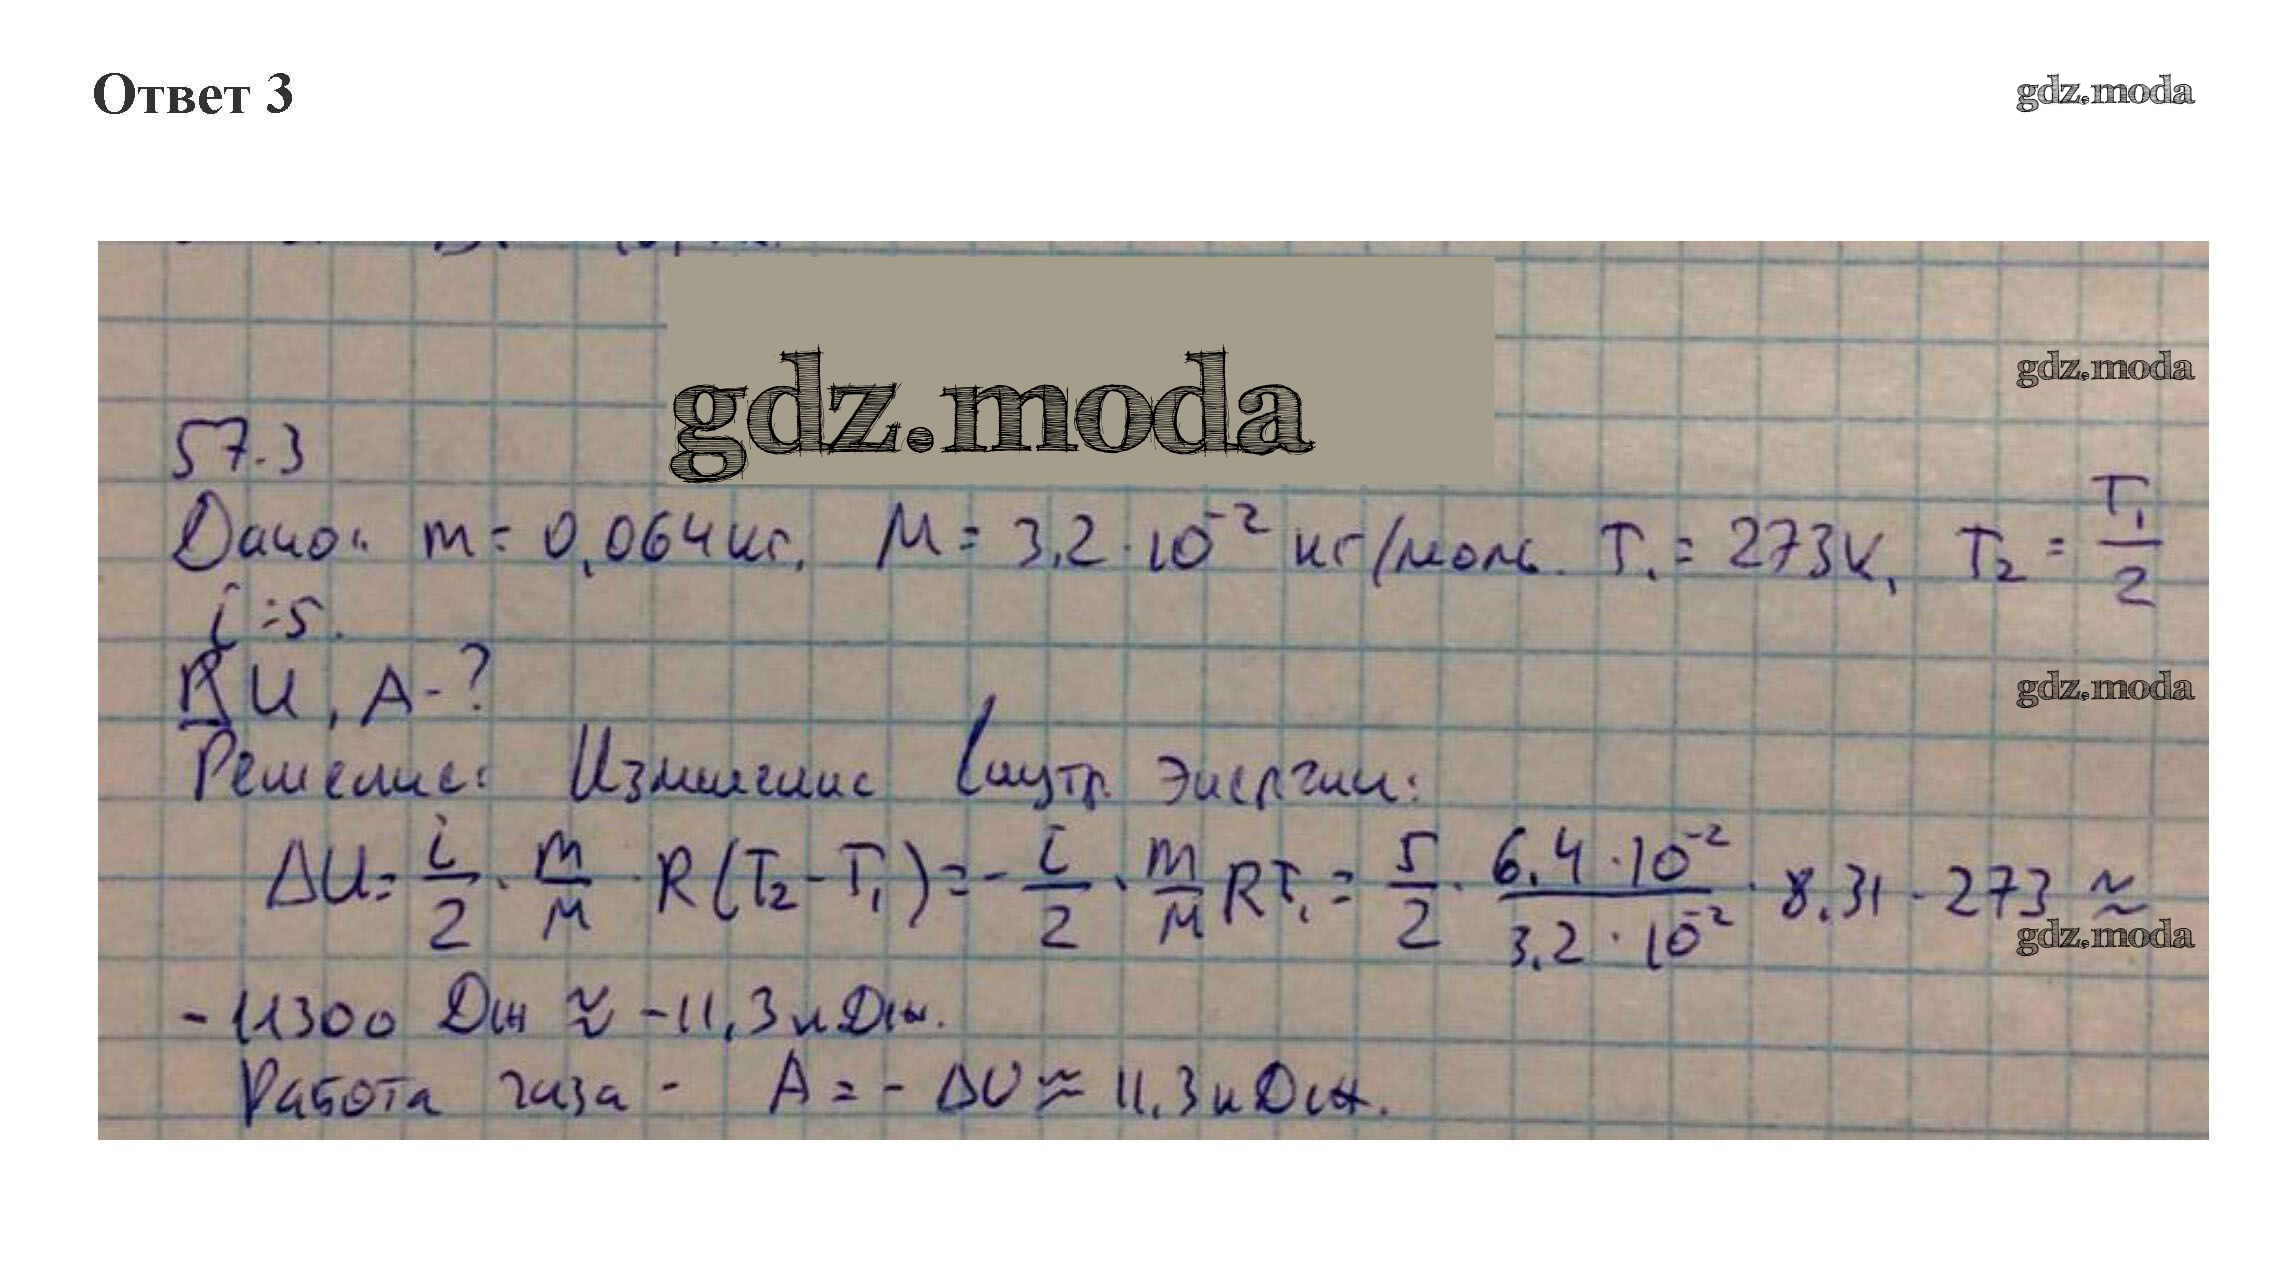 Ответ 3
gdz.moda
gdz.moda
gdz.moda
57.3
Дано: m = 0,064 кг, M = 3,2 · 10⁻² кг/моль. T₁ = 273К, T₂ = T₁/2
i = 5.
ΔU, A - ?
gdz.moda
Решение: Изменение внутр. энергии:
ΔU = i/2 · m/M · R(T₂ - T₁) = - i/2 · m/M RT₁ = 5/2 · 6,4 · 10⁻²/3,2 · 10⁻² · 8,31 · 273 ≈
gdz.moda
- 11300 Дж ≈ -11,3 кДж.
Работа газа - A = - ΔU ≈ 11,3 кДж.